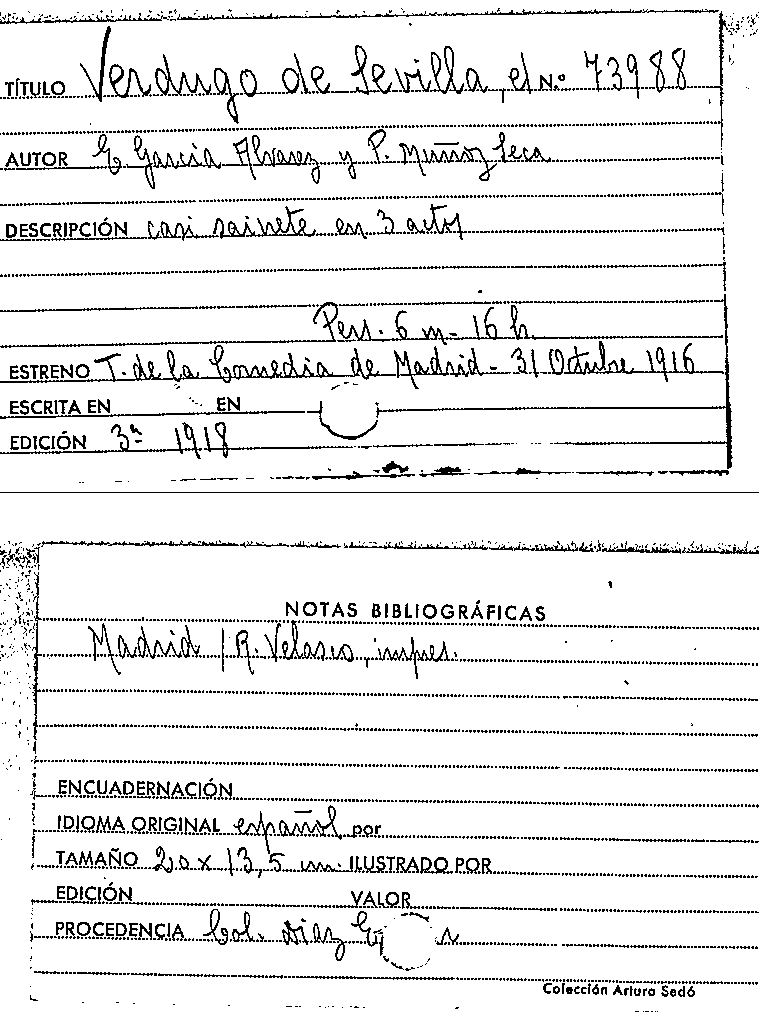 TÍTULO Verdugo de Sevilla, el N.º 73988
AUTOR E. García Alvarez y P. Muñoz Seca
DESCRIPCIÓN casi sainete en 3 actos
Pers. 6 m - 16 h.
ESTRENO T. de la Comedia de Madrid - 31 Octubre 1916
ESCRITA EN EN
EDICIÓN 3ª 1918
NOTAS BIBLIOGRÁFICAS
Madrid / R. Velasco, impres.
ENCUADERNACIÓN
IDIOMA ORIGINAL español por
TAMAÑO 20 x 13,5 cm. ILUSTRADO POR
EDICIÓN VALOR
PROCEDENCIA Col. Diaz
Colección Arturo Sedó